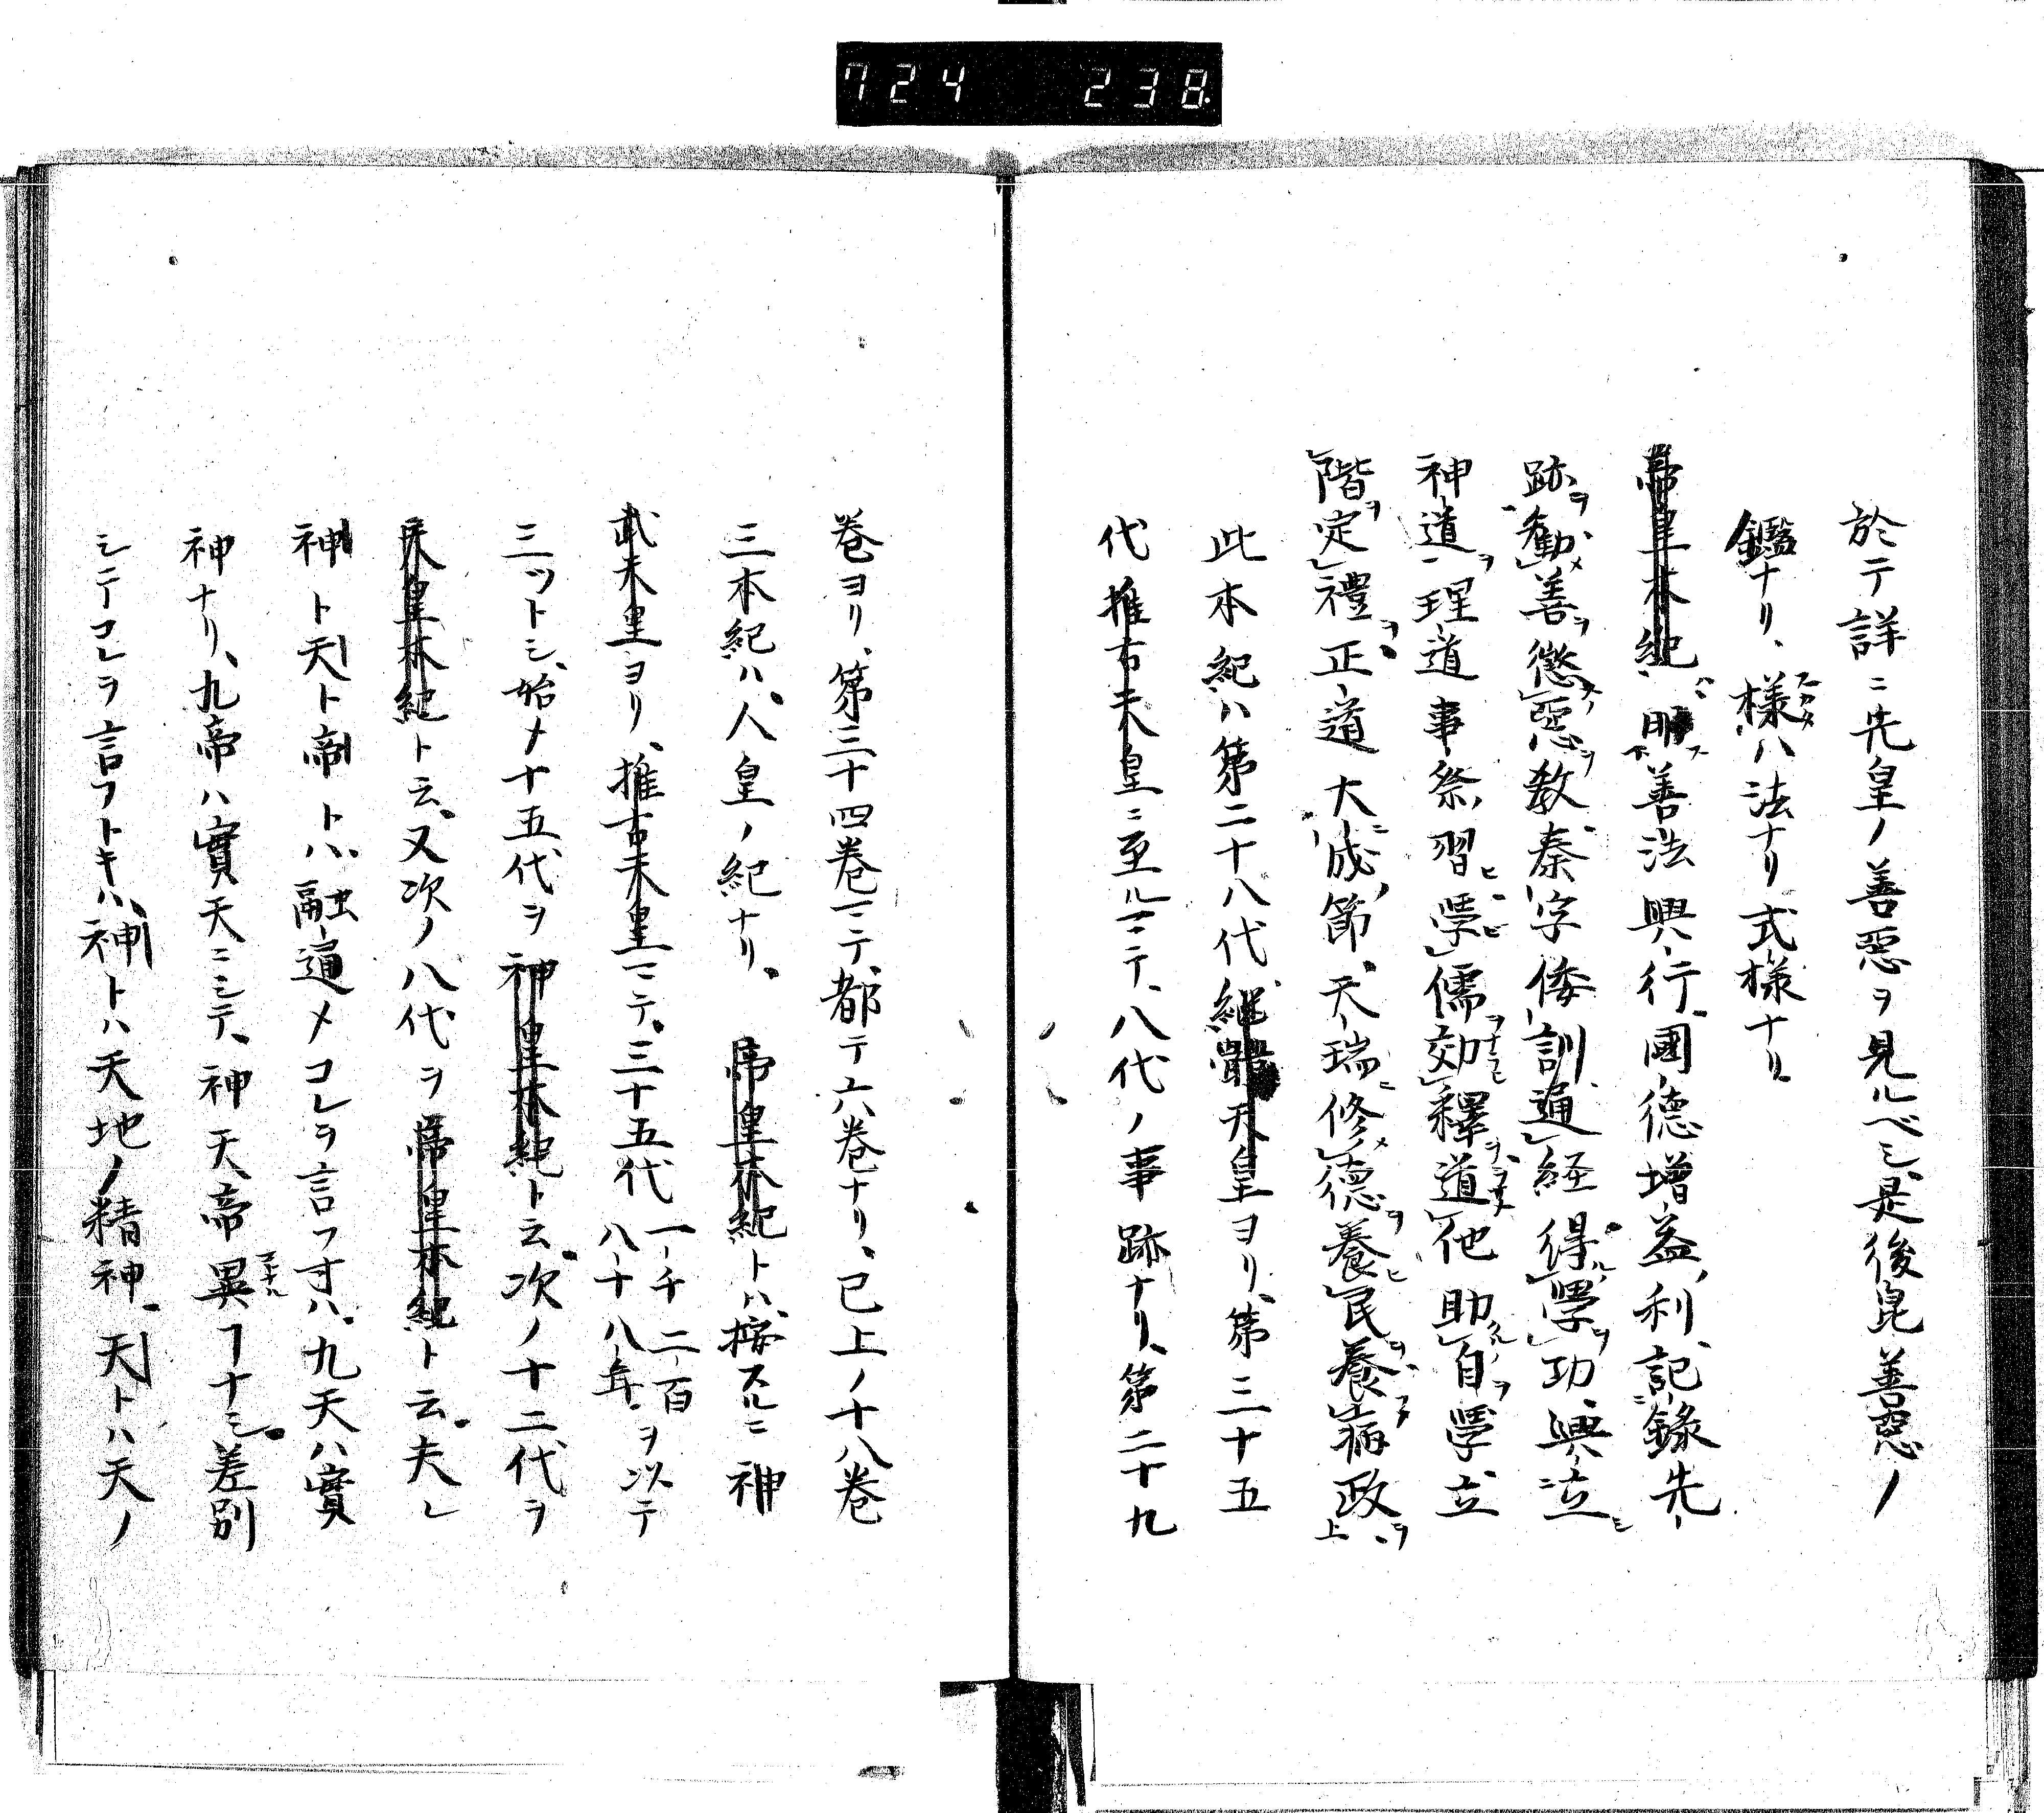 724 238
於テ詳ニ先皇ノ善惡ヲ見ルベシ、是後昆善惡ノ
鑑ナリ、様ハ法ナリ式様ナリ
帝皇本紀ハ明善法興行國德增益利記錄先
跡ヲ勸メ善ヲ懲惡ヲ教秦字倭訓通経得學ヲ功興立シ
神道ヲ理道事祭習ヒ學ビ儒効釋道他助自學立
階ヲ定禮ヲ正道大成節天瑞修メ德ヲ養ヒ民ヲ養病政ヲ
此本紀ハ第二十八代繼體天皇ヨリ、第三十五
代推古天皇ニ至ルマテ、八代ノ事跡ナリ、第二十九
巻ヨリ、第三十四巻マテ、都テ六巻ナリ、已上ノ十八巻
三本紀ハ、人皇ノ紀ナリ。帝皇本紀トハ、按スルニ神
武天皇ヨリ、推古天皇マテ、三十五代一千二百八十八年ヲ以テ
三ツトシ、始メ十五代ヲ神皇本紀ト云、次ノ十二代ヲ
天皇本紀ト云、又次ノ八代ヲ帝皇本紀ト云、夫レ
神ト天ト帝トハ、融通メコレヲ言フ寸ハ、九天ハ實
神ナリ、九帝ハ實天ニシテ、神天帝異コトナルヿナシ、差別
シテコレヲ言フトキハ、神トハ天地ノ精神、天トハ天ノ